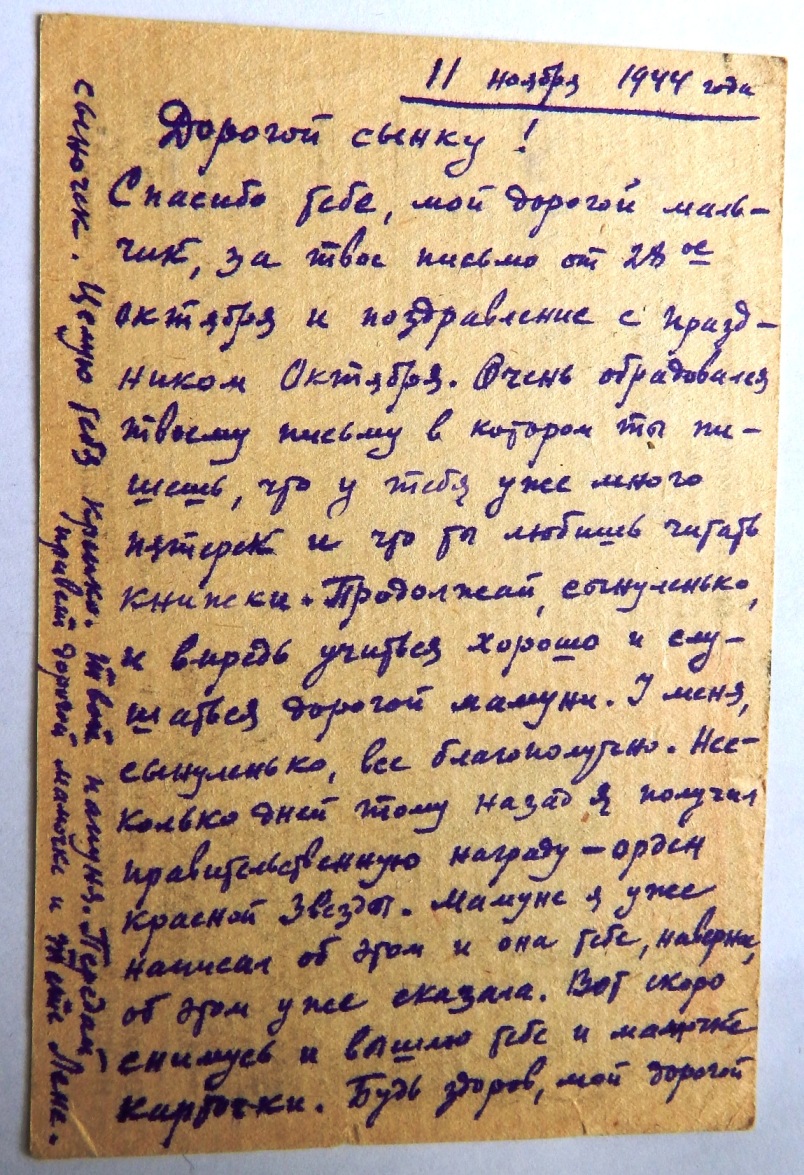 11 ноября 1944 года
Дорогой сынку!
Спасибо тебе, мой дорогой маль-
чик, за твое письмо от 28ое
октября и поздравление с празд-
ником Октября. Очень обрадовался
твоему письму в котором ты пи-
шешь, что у тебя уже много
пятерок и что ты любишь читать
книжки. Продолжай, сынуленько,
и впредь учиться хорошо и слу-
шаться дорогой мамуни. У меня,
сынуленько, все благополучно. Нес-
колько дней тому назад я получил
правительственную награду – орден
Красной Звезды. Мамуне я уже
написал об этом и она тебе, наверно,
об этом уже сказала. Вот скоро
снимусь и вышлю тебе и мамочке
карточки. Будь здоров, мой дорогой
сыночек. Целую тебя крепко. Твой папуня. Передай
привет дорогой мамочке и тете Лене.